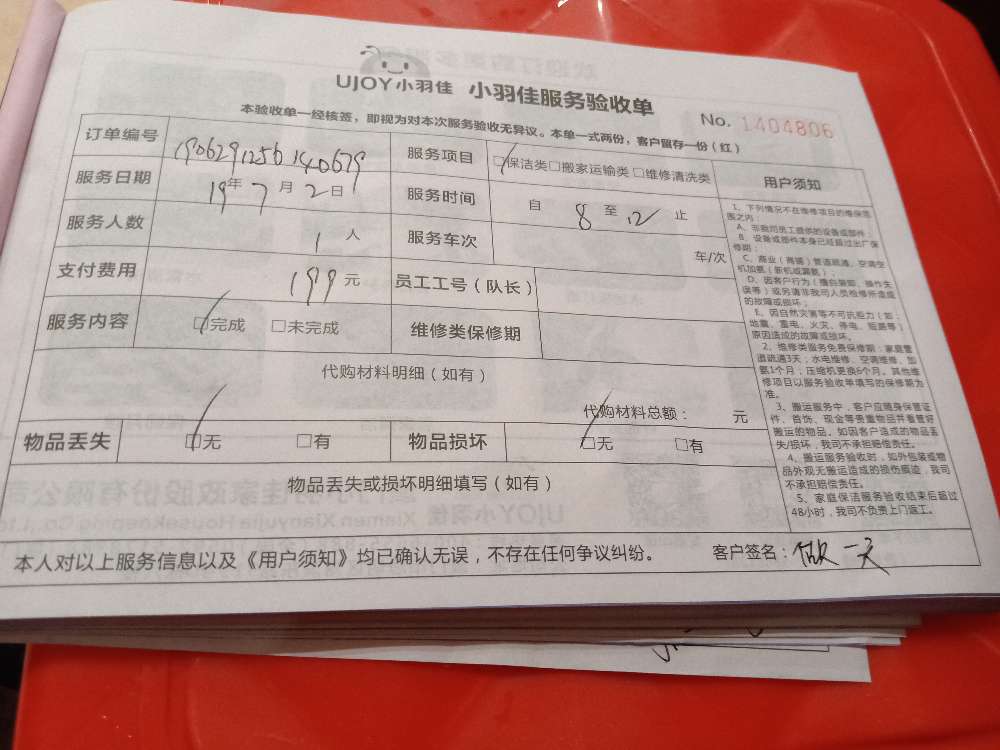 UJOY小羽佳 小羽佳服务验收单
No. 1404806
本验收单一经核签，即视为对本次服务验收无异议。本单一式两份，客户留存一份（红）
订单编号 1906291256140679 服务项目 □保洁类□搬家运输类□维修清洗类 用户须知
服务日期 19年7月2日 服务时间 自 8 至 12 止
服务人数 1人 服务车次 车/次
支付费用 199元 员工工号（队长）
服务内容 □完成 □未完成 维修类保修期
代购材料明细（如有）
代购材料总额： 元
物品丢失 □无 □有 物品损坏 □无 □有
物品丢失或损坏明细填写（如有）
1、下列情况不在维修项目的维保范
围之内：
A、非我司员工提供的设备或部件；
B、设备或部件本身已经超过出厂保
修期；
C、商业（商铺）管道疏通、空调空
机加氨（新机或漏氨）；
D、因客户行为（擅自装卸、操作失
误等）或另请非我司人员检修所造成
的故障或损坏；
E、因自然灾害等不可抗拒力（如：
地震、雷电、火灾、停电、短路等）
原因造成的故障或损坏。
2、维修类服务免费保修期：家庭管
道疏通3天；水电维修、空调维修、加
氨1个月；压缩机更换6个月。其他维
修项目以服务验收单填写的保修期为
准。
3、搬运服务中，客户应随身保管证
件、首饰、现金等贵重物品并看管好
搬运的物品。如因客户造成的物品丢
失/损坏，我司不承担赔偿责任。
4、搬运服务验收时，如外包装或物
品外观无搬运造成的损伤痕迹，我司
不承担赔偿责任。
5、家庭保洁服务验收结束后超过
48小时，我司不负责上门返工。
本人对以上服务信息以及《用户须知》均已确认无误，不存在任何争议纠纷。 客户签名：做一天